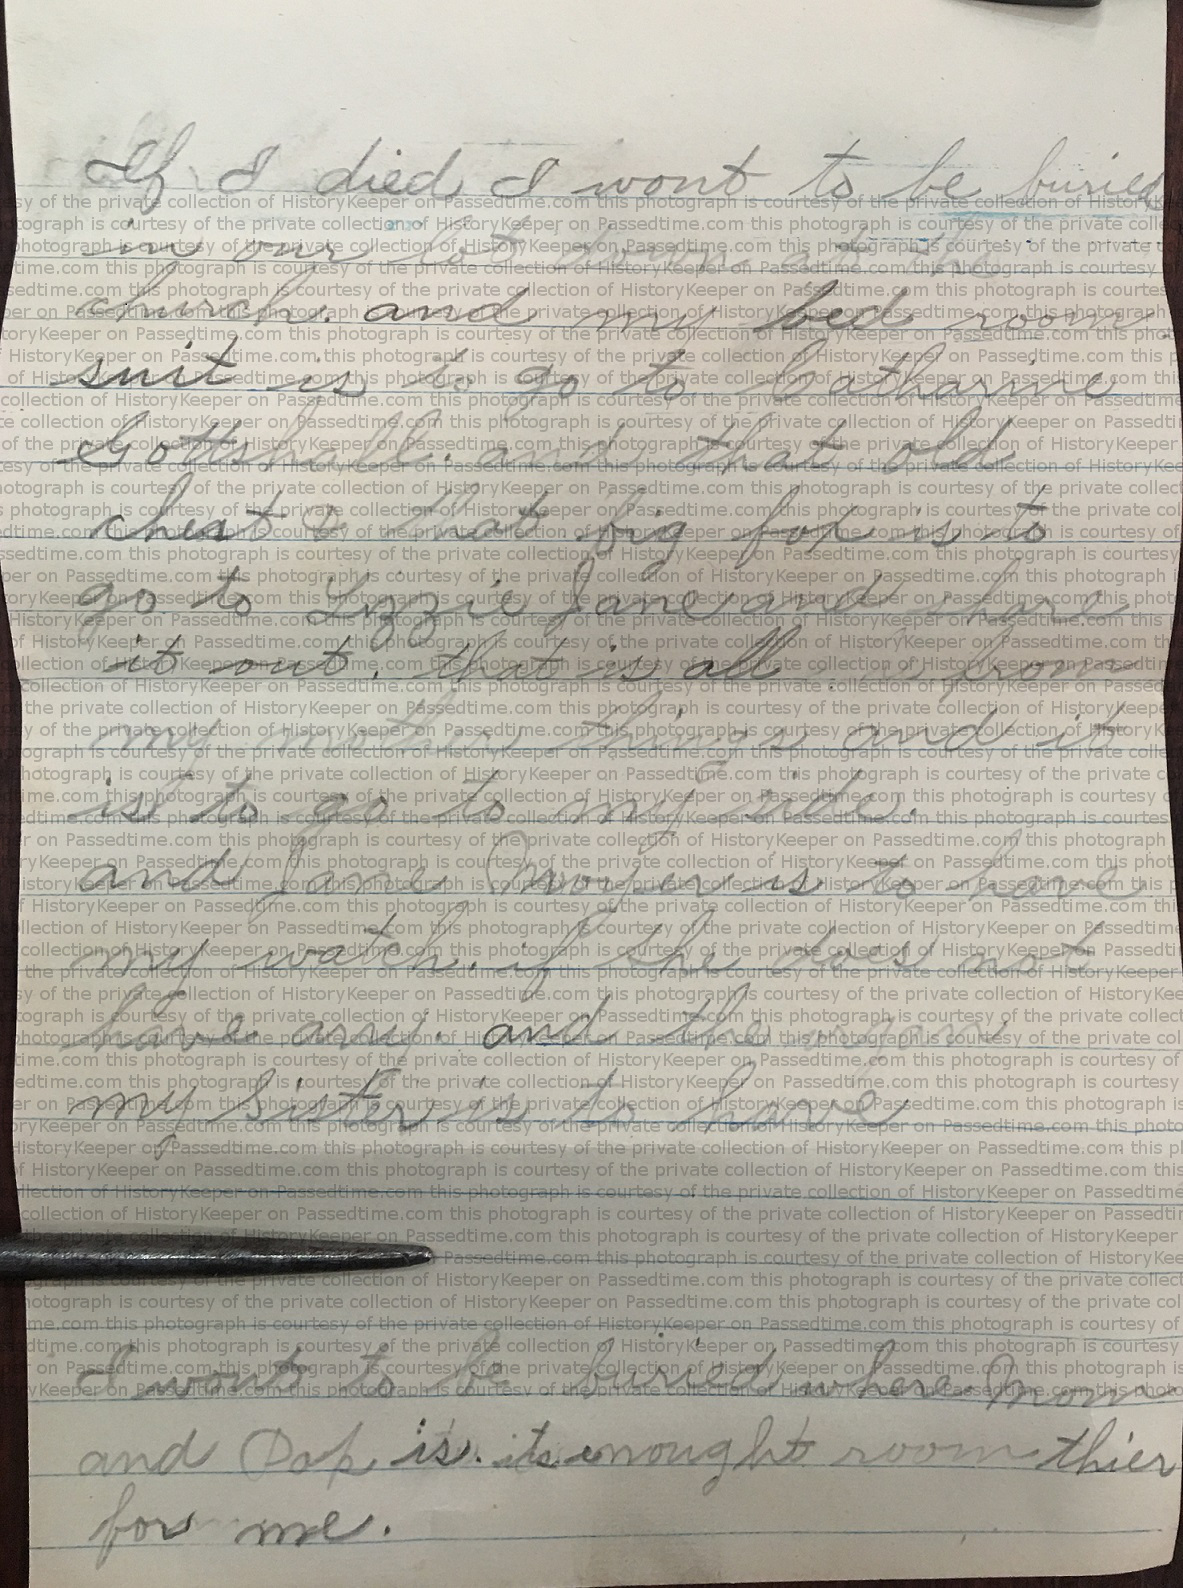 If I died I wont to be buried
in our lot down at the
church. and my bed room
suit is to go to Catharine
Gottshall. and that old
cheat & that big fox is to
go to Lizzie Jane and share
it out. that is all from
my mother things and it
is to go to my side.
and Jane is to have
my watch. if she does not
have any. and the organ
my Sister is to have
I wont to be buried where Mom
and Pap is. its enought room thier
for me.
this photograph is courtesy of the private collection of HistoryKeeper on Passedtime.com